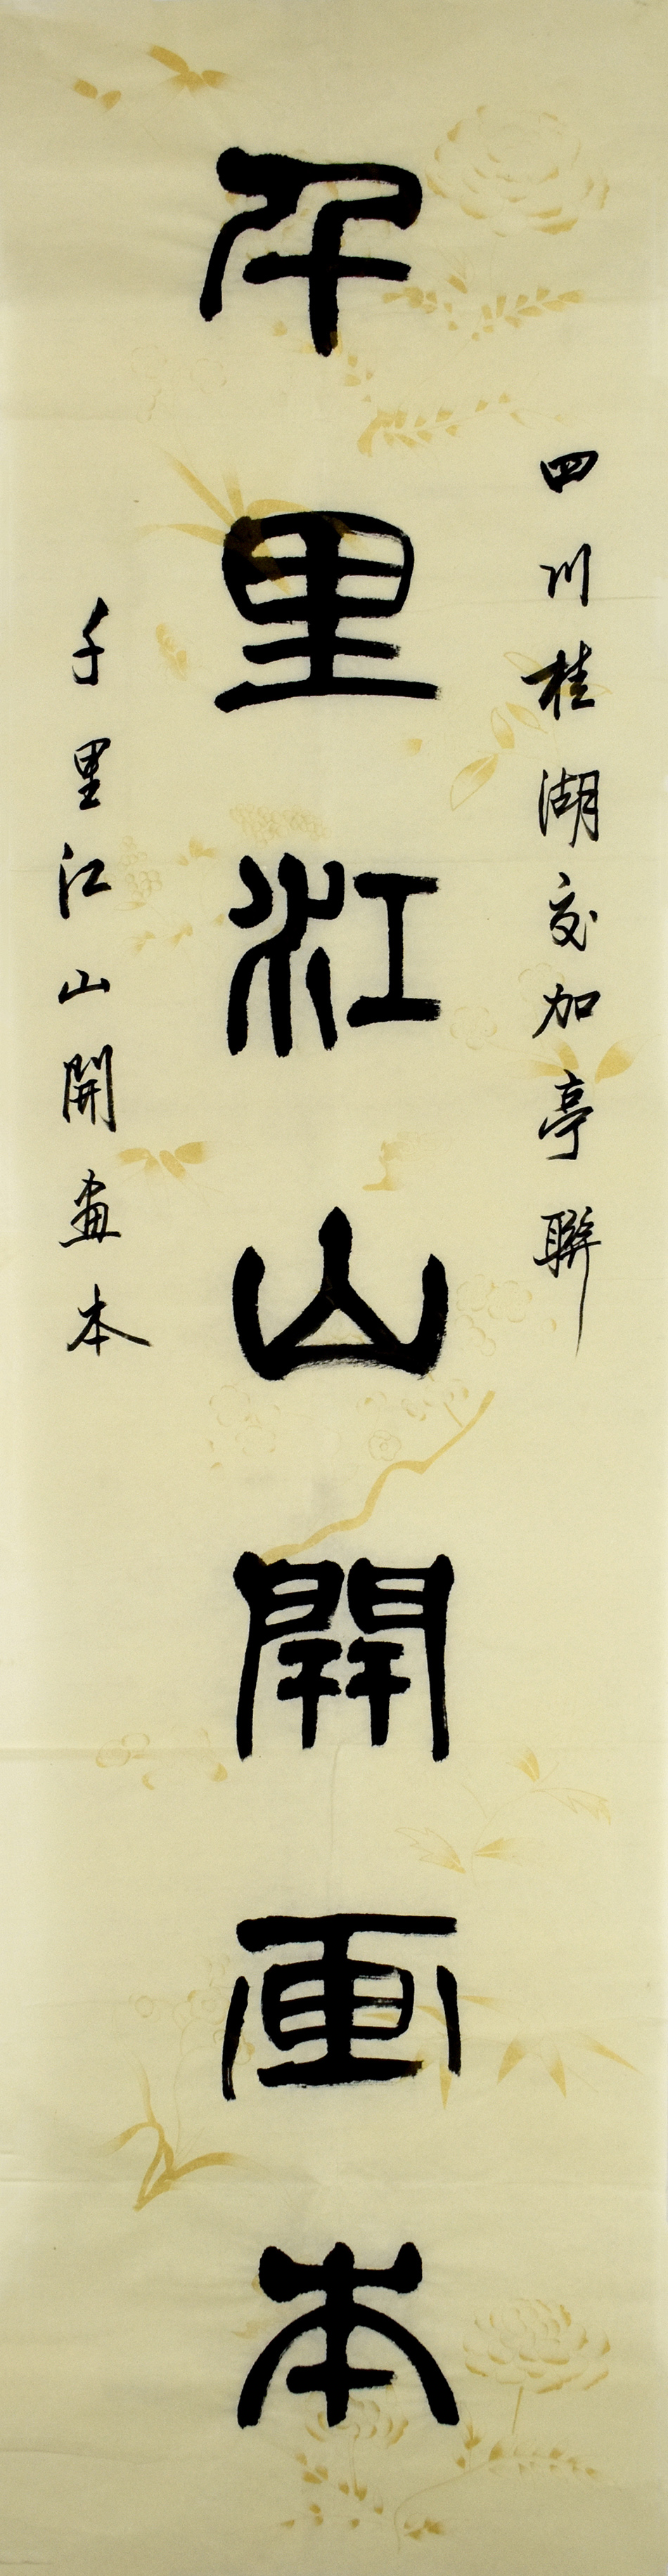 四川桂湖交加亭聯
千里江山開画本
千里江山開畫本